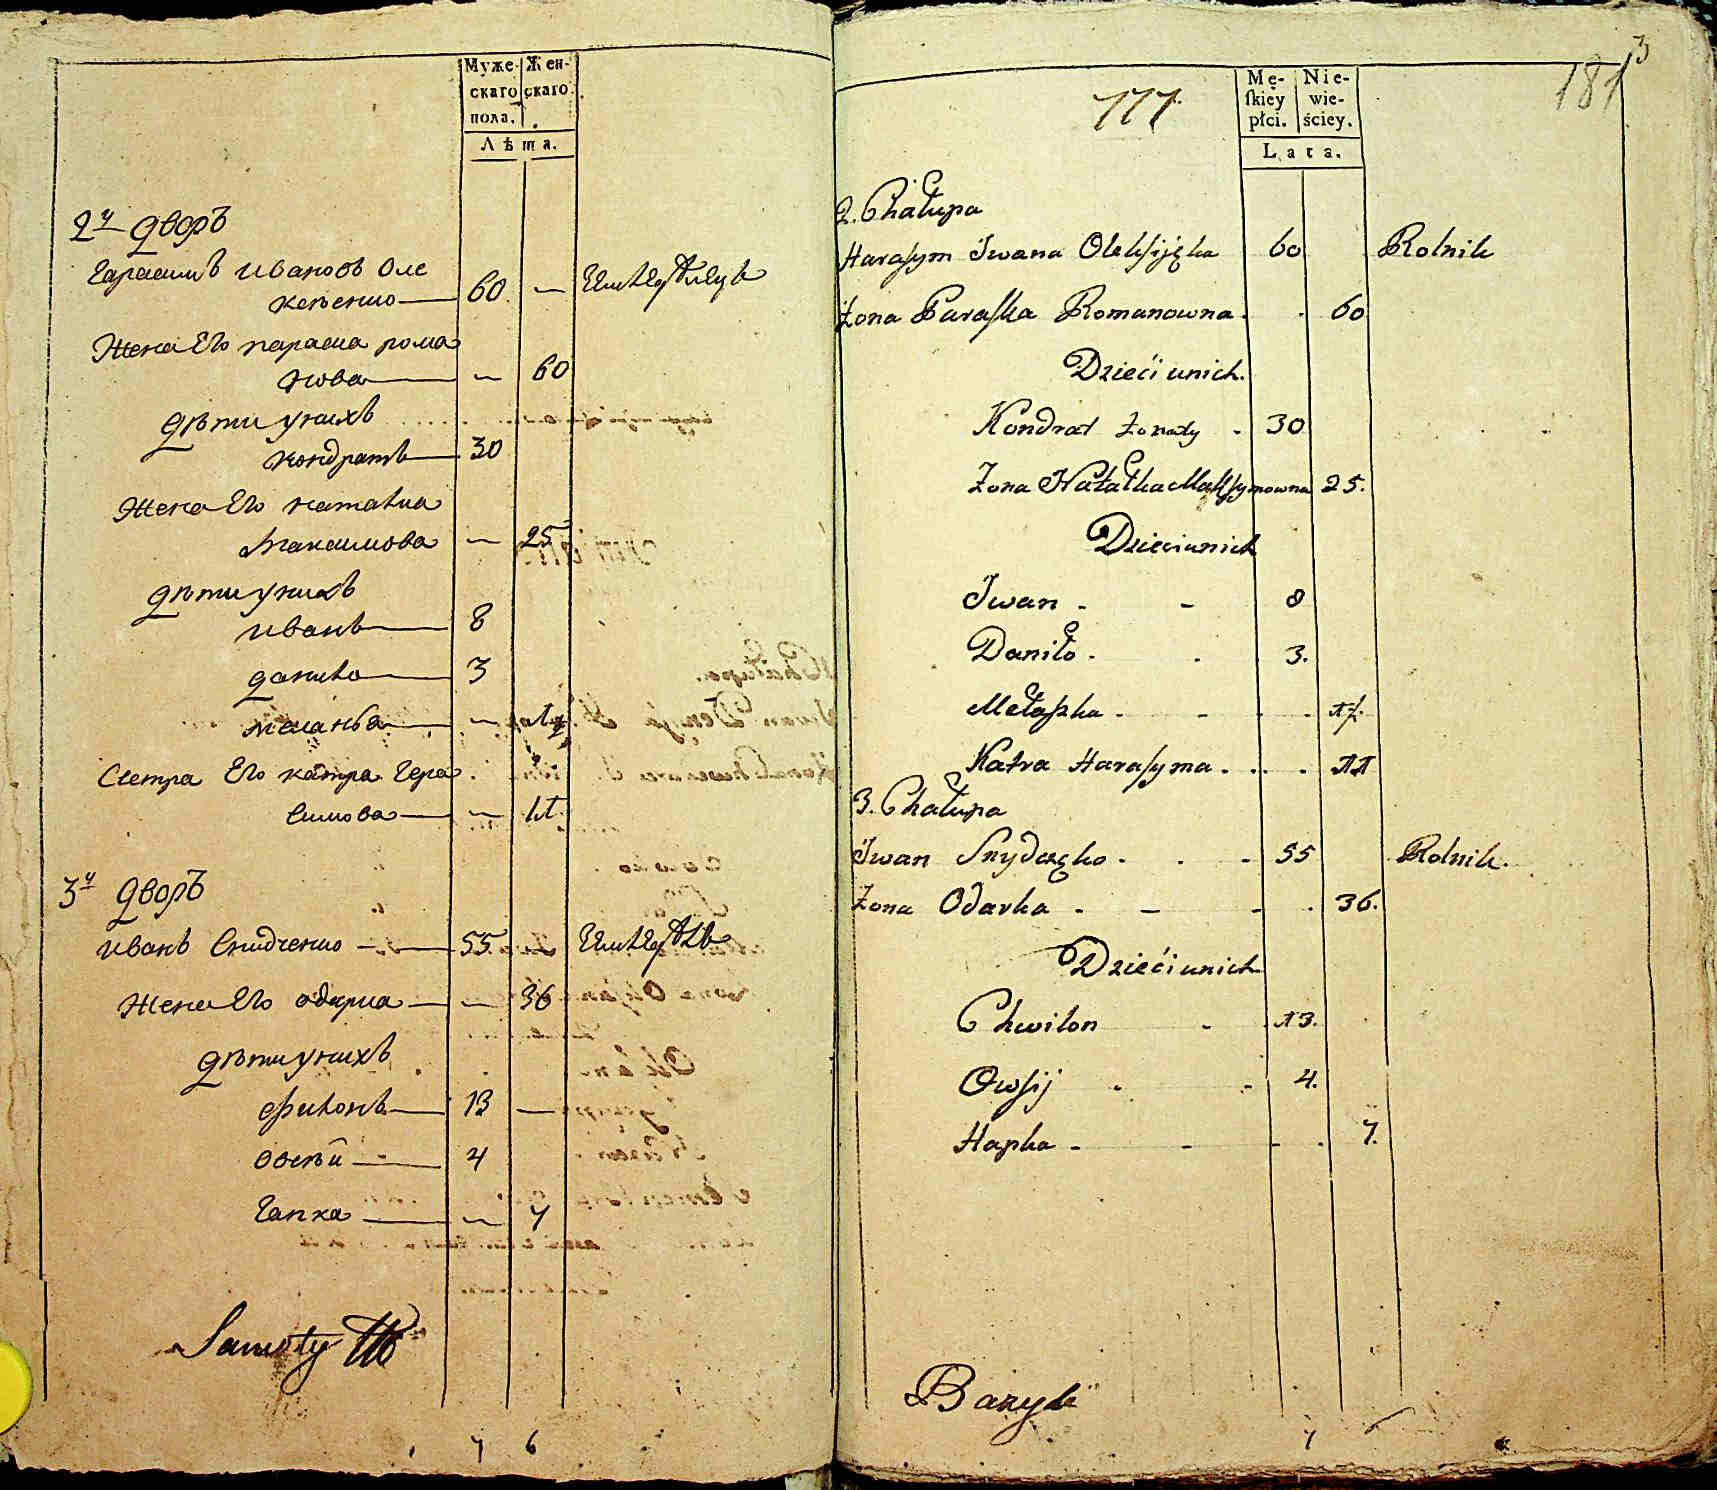 Муже- Жен-
скаго скаго
пола.
Лѣта.
2й дворъ
Гарасимъ Ивановъ Оле
ксѣенко 60
Жена Его параска рома
нова 60
дѣти унихъ
кондратъ 30
Жена Его наталка
Максимова 25
дѣти унихъ
иванъ 8
данило 3
меланья
Сестра Его катра Гера
симова 11
3й дворъ
иванъ Снидченко 55
Жена Его одарка 36
дѣти унихъ
филонъ 13
овсѣй 4
Гапка 7
Samoty
7 6
3
181
777.
Mę- Nie-
ſkiéy wie-
płci. ściey.
Lata.
2. Chałupa
Haraſym Iwana Olekſijęka 60 Rolnik
Żona Paraſka Romanowna 60
Dzieći unich.
Kondrat żonaty 30
Żona Natałka Makſymowna 25.
Dzieci unich
Iwan 8
Daniło 3.
Małaſzka 17.
Katra Haraſyma 11
3. Chałupa
Iwan Snydczęko 55 Rolnik.
Żona Odarka 36.
Dzieći unich
Chwilon 13.
Owſij 4.
Hapka 7.
Bazyli